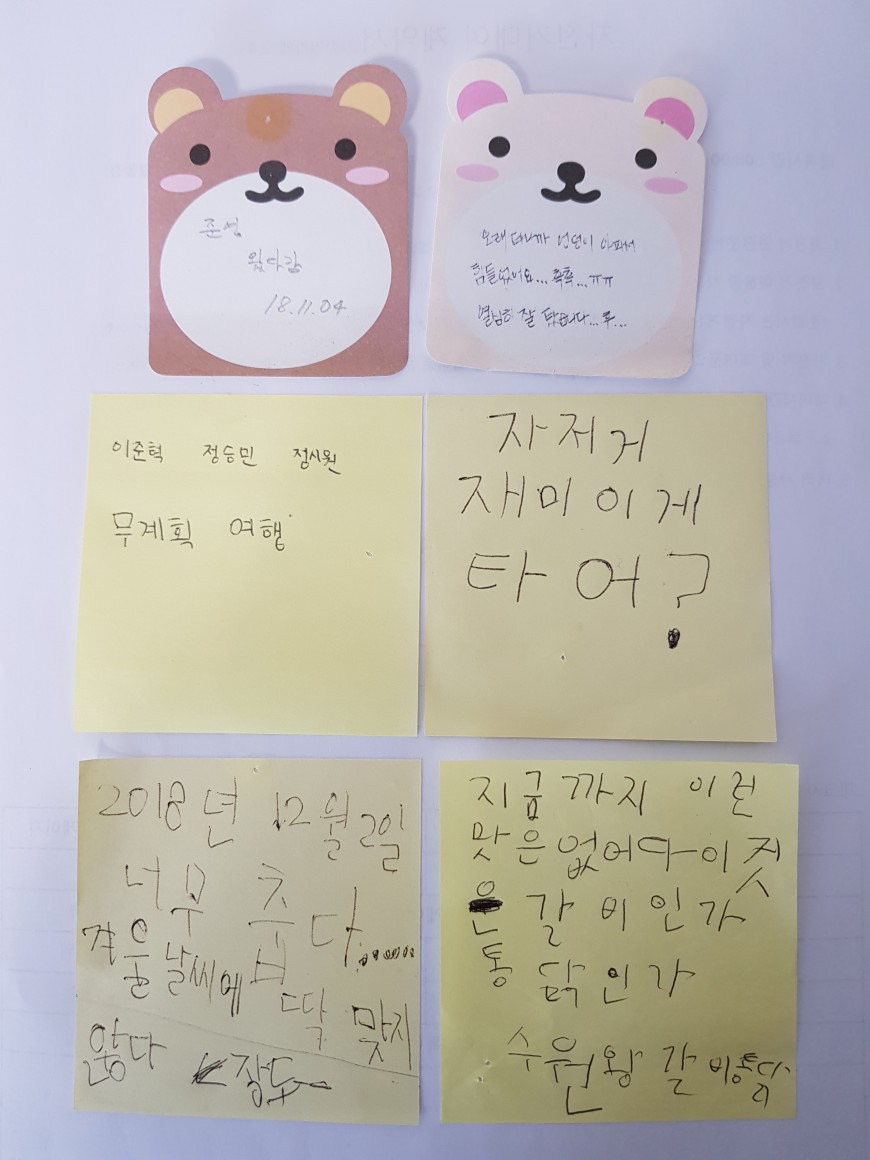 준영
왔다감
18.11.04.
오래 타니까 엉덩이 아파서
힘들었어요... 쭉쭉...ㅠㅠ
열심히 잘 탔습니다...후...
이준혁 정승민 정시원
무계획 여행
자저거
재미이게
타어?
2018년 12월 2일
너무 춥다.........
겨울날씨에 부딱 맞지
않다
지금까지 이런
맛은없어다이것
은 갈비인가
통닭인가
수원왕갈비통닭